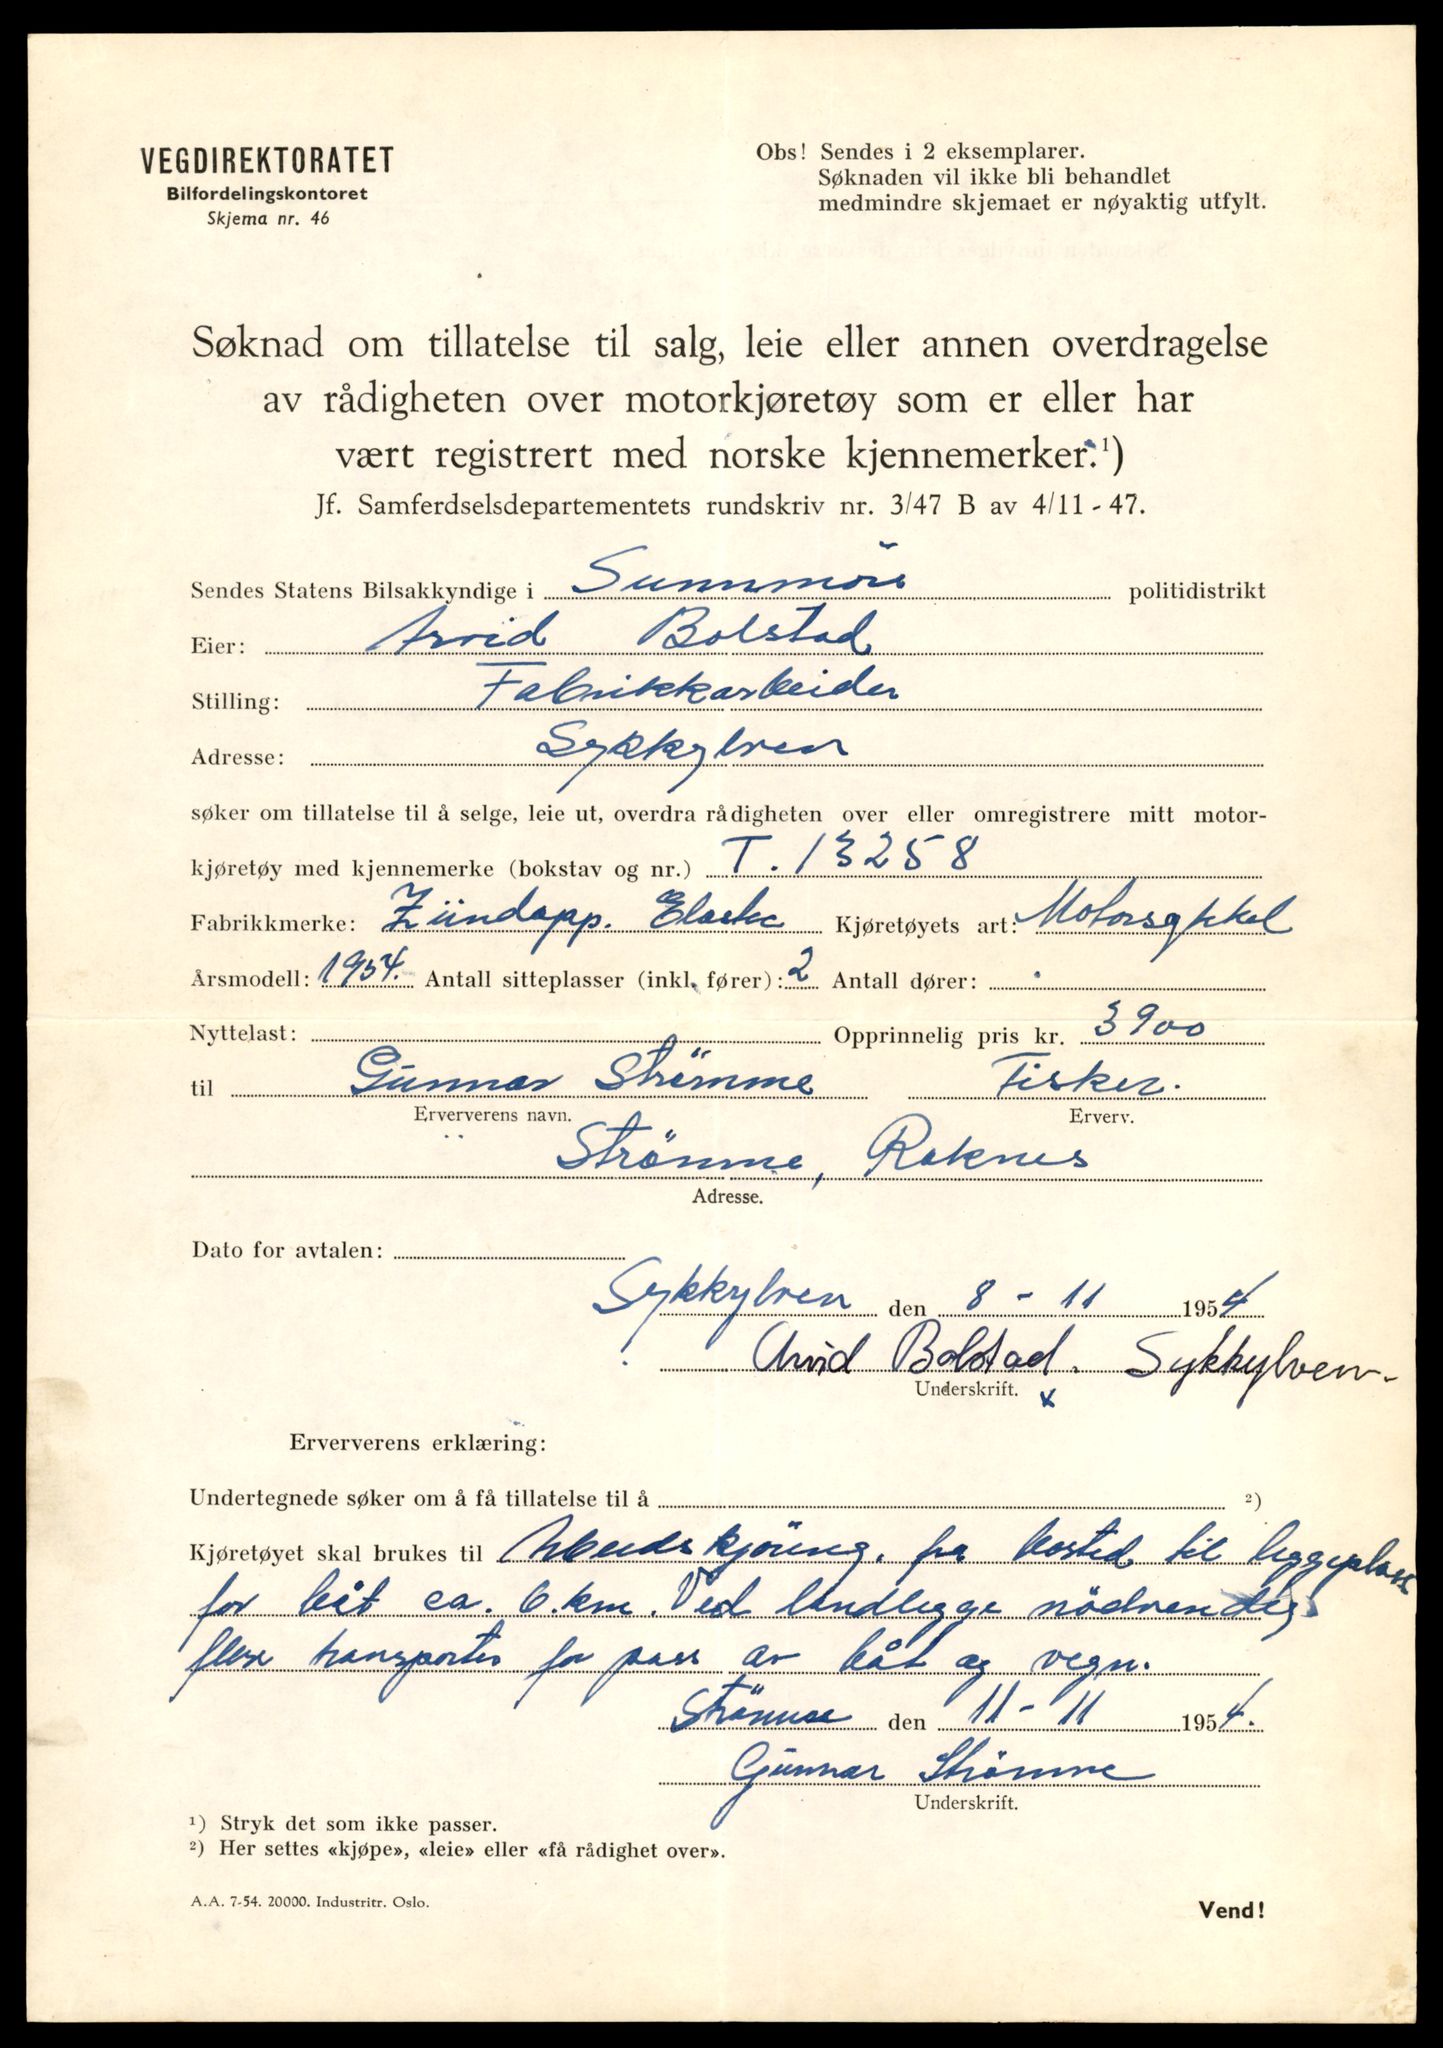 VEGDIREKTORATET
Bilfordelingskontoret
Skjema nr. 46
Obs! Sendes i 2 eksemplarer.
Søknaden vil ikke bli behandlet
medmindre skjemaet er nøyaktig utfylt.
Søknad om tillatelse til salg, leie eller annen overdragelse
av rådigheten over motorkjøretøy som er eller har
vært registrert med norske kjennemerker.¹)
Jf. Samferdselsdepartementets rundskriv nr. 3/47 B av 4/11 - 47.
Sendes Statens Bilsakkyndige i Sunnmöre politidistrikt
Eier: Arvid Bolstad
Stilling: Fabrikkarbeider
Adresse: Sykkylven
søker om tillatelse til å selge, leie ut, overdra rådigheten over eller omregistrere mitt motor-
kjøretøy med kjennemerke (bokstav og nr.) T. 13258
Fabrikkmerke: Zündapp. Elastic Kjøretøyets art: Motorsykkel
Årsmodell: 1954. Antall sitteplasser (inkl. fører): 2 Antall dører:
Nyttelast: Opprinnelig pris kr. 3900
til Gunnar Strömme Fisker.
Erververens navn. Erverv.
Strömme, Raknes
Adresse.
Dato for avtalen:
Sykkylven den 8 - 11 1954
Arvid Bolstad. Sykkylven.
Underskrift. x
Erververens erklæring:
Undertegnede søker om å få tillatelse til å ²)
Kjøretøyet skal brukes til Arbeidskjöring. fra bosted til liggeplass
for båt ca. 6. km. Ved landligge nödvendig
flere transporter for pass av båt og vegn.
Strömme den 11 - 11 1954.
Gunnar Strömme
Underskrift.
¹) Stryk det som ikke passer.
²) Her settes «kjøpe», «leie» eller «få rådighet over».
A.A. 7-54. 20000. Industritr. Oslo.
Vend!